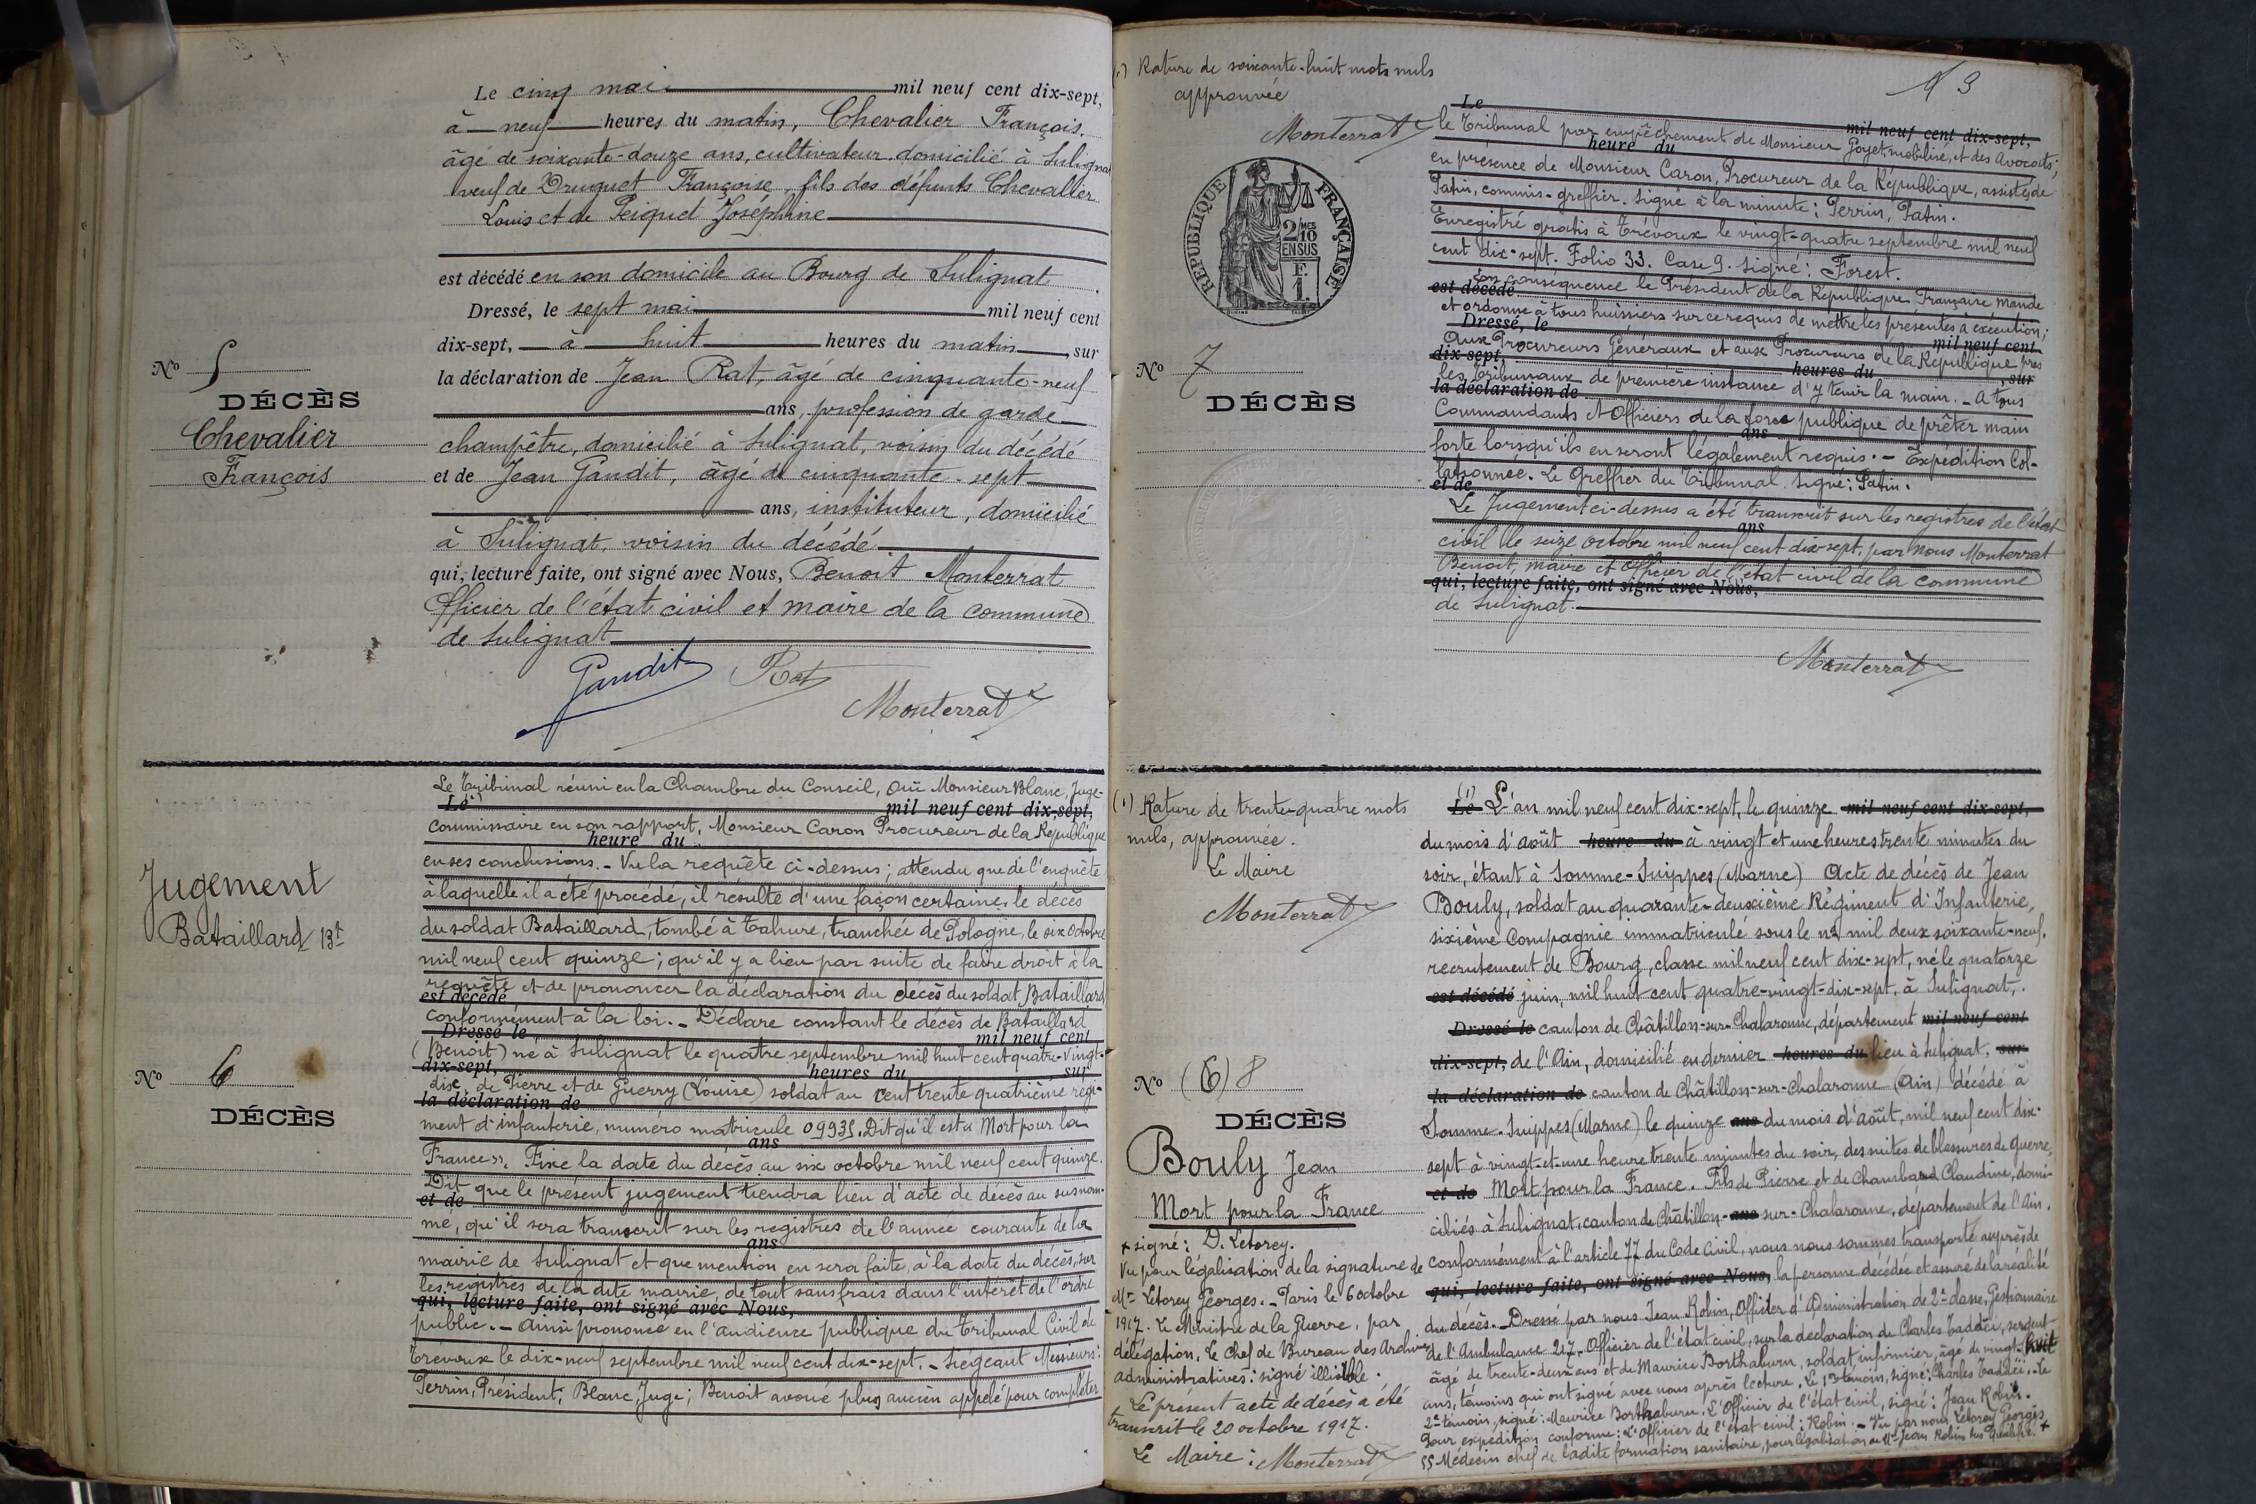 Le cinq mai mil neuf cent dix-sept,
à neuf heures du matin, Chevalier François,
âgé de soixante-douze ans, cultivateur domicilié à Sulignat
veuf de Druguet Françoise, fils des défunts Chevallier
Louis et de Peiquet Joséphine
est décédé en son domicile au Bourg de Sulignat.
Dressé, le sept mai mil neuf cent
dix-sept, à huit heures du matin, sur
la déclaration de Jean Rat, âgé de cinquante-neuf
ans, profession de garde
champêtre, domicilié à Sulignat, voisin du décédé
et de Jean Gaudit, âgé de cinquante-sept
ans, instituteur, domicilié
à Sulignat, voisin du décédé
qui, lecture faite, ont signé avec Nous, Benoit Monterrat
Officier de l'état civil et maire de la commune
de Sulignat
Gaudit Rat
Monterrat
No 5
DÉCÈS
Chevalier
François
Le Tribunal réuni en la Chambre du Conseil, Ouï Monsieur Blanc, Juge-
Le mil neuf cent dix-sept,
commissaire en son rapport, Monsieur Caron Procureur de la République
heure du
en ses conclusions. - Vu la requête ci-dessus ; attendu que de l'enquête
à laquelle il a été procédé, il résulte d'une façon certaine, le décès
du soldat Bataillard, tombé à Tahure, tranchée de Pologne, le six octobre
mil neuf cent quinze ; qu'il y a lieu par suite de faire droit à la
requête et de prononcer la déclaration du décès du soldat Bataillard
est décédé
conformément à la loi. - Déclare constant le décès de Bataillard
Dressé le mil neuf cent
(Benoit) né à Sulignat le quatre septembre mil huit cent quatre-vingt-
dix-sept, heures du sur
dix, de Pierre et de Guerry (Louise) soldat au cent trente quatrième régi-
la déclaration de
ment d'infanterie, numéro matricule 09935. Dit qu'il est « Mort pour la
ans
France ». Fixe la date du décès au six octobre mil neuf cent quinze.
Dit que le présent jugement tiendra lieu d'acte de décès au susnom-
et de
mé, qu'il sera transcrit sur les registres de l'année courante de la
ans
mairie de Sulignat et que mention en sera faite, à la date du décès, sur
les registres de la dite mairie, de tout sans frais dans l'intérêt de l'ordre
qui, lecture faite, ont signé avec Nous,
public. - Ainsi prononcé en l'audience publique du Tribunal Civil de
Trévoux le dix-neuf septembre mil neuf cent dix-sept. - Siégeant Messieurs :
Perrin, Président ; Blanc, Juge ; Benoit avoué plus ancien appelé pour compléter
Jugement
Bataillard Bt
No 6
DÉCÈS
(1) Rature de soixante-huit mots nuls
approuvée
Monterrat
REPUBLIQUE FRANÇAISE
2/10 MES
EN SUS
F.
1.
No 7
DÉCÈS
3
Le mil neuf cent dix-sept,
le Tribunal par empêchement de Monsieur Goyet, mobilisé, et des Avocats ;
heure du
en présence de Monsieur Caron, Procureur de la République, assistés de
Patin, commis-greffier. Signé à la minute : Perrin, Patin.
Enregistré gratis à Trévoux le vingt-quatre septembre mil neuf
cent dix-sept. Folio 33. Case 9. Signé : Forest.
En conséquence le Président de la République Française mande
est décédé
et ordonne à tous huissiers sur ce requis de mettre les présentes à exécution ;
Dressé, le mil neuf cent
Aux Procureurs Généraux et aux Procureurs de la République près
dix-sept, heures du , sur
les Tribunaux de première instance d'y tenir la main. - A tous
la déclaration de
Commandants et Officiers de la force publique de prêter main
ans
forte lorsqu'ils en seront légalement requis. - Expédition Col-
lationnée. Le Greffier du Tribunal. Signé : Patin.
et de
Le Jugement ci-dessus a été transcrit sur les registres de l'état
ans
civil le seize octobre mil neuf cent dix-sept, par nous Monterrat
Benoit, maire et Officier de l'état civil de la commune
qui, lecture faite, ont signé avec Nous,
de Sulignat.
Monterrat
(1) Rature de trente-quatre mots
nuls, approuvée.
Le Maire
Monterrat
No (6) 8
DÉCÈS
Bouly Jean
Mort pour la France
+ signé : D. Letorey.
Vu pour légalisation de la signature de
Mr Letorey Georges. - Paris le 6 octobre
1917. Le Ministre de la Guerre, par
délégation, Le Chef de Bureau des Archives
administratives : signé illisible.
Le présent acte de décès a été
transcrit le 20 octobre 1917.
Le Maire : Monterrat
(1)
Le L'an mil neuf cent dix-sept, le quinze mil neuf cent dix-sept,
du mois d'août heure du à vingt et une heures trente minutes du
soir, étant à Somme-Suippes (Marne) Acte de décès de Jean
Bouly, soldat au quarante-deuxième Régiment d'Infanterie,
sixième Compagnie immatriculé sous le no mil deux soixante-neuf.
recrutement de Bourg, classe mil neuf cent dix-sept, né le quatorze
est décédé juin, mil huit cent quatre-vingt-dix-sept, à Sulignat,
Dressé le canton de Châtillon-sur-Chalaronne, département mil neuf cent
dix-sept, de l'Ain, domicilié en dernier heures du lieu à Sulignat, sur
la déclaration de canton de Châtillon-sur-Chalaronne (Ain) décédé à
Somme-Suippes (Marne) le quinze ans du mois d'août, mil neuf cent dix-
sept à vingt-et-une heure trente minutes du soir, des suites de blessures de guerre,
et de Mort pour la France. Fils de Pierre et de Chambard Claudine, domi-
ciliés à Sulignat, canton de Châtillon- ans sur-Chalaronne, département de l'Ain.
conformément à l'article 77 du Code Civil, nous nous sommes transporté auprès de
qui, lecture faite, ont signé avec Nous, la personne décédée et assuré de la réalité
du décès. - Dressé par nous Jean Robin, Officier d'Administration de 2e classe, Gestionnaire
de l'Ambulance 217. Officier de l'état civil, sur la déclaration de Charles Taddéi, sergent
âgé de trente-deux ans et de Maurice Borthaburu, soldat infirmier, âgé de vingt-huit
ans, témoins qui ont signé avec nous après lecture. Le 1er témoin, signé : Charles Taddéi. - Le
2e témoin, signé : Maurice Borthaburu. L'Officier de l'état civil, signé : Jean Robin.
Pour expédition conforme : L'Officier de l'état civil : Robin. - Vu par nous Letorey Georges
Médecin chef de ladite formation sanitaire, pour légalisation de Mr Jean Robin sus qualifié. +